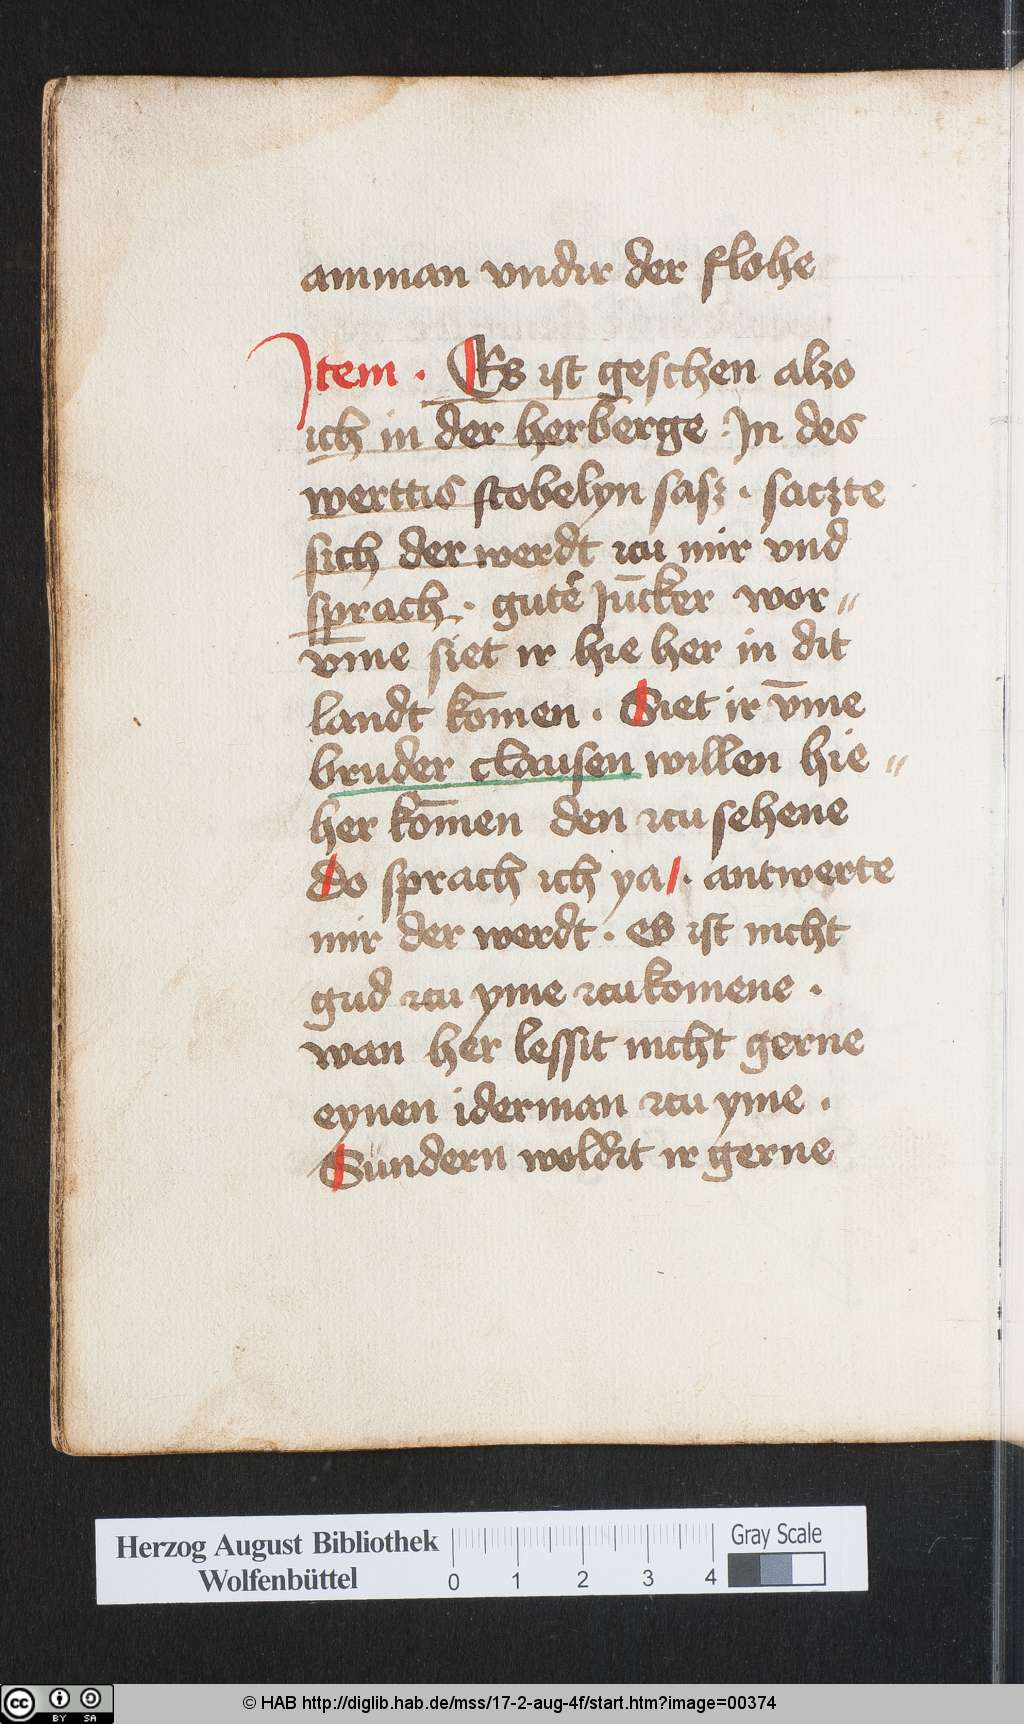 amman vndir der flohe
Item . Es ist geschen alzo
ich in der herberge . In des
werttis stobelyn sasz . saczte
sich der werdt zcu mir vnd
sprach . gute᷑ Ju̅cker wor〃
vm̅e siet ir hie her in dit
landt ko̅men . Siet ir vm̅e
bruder clausen willen hie〃
her ko̅men den zcu sehene
do sprach ich ya . antwerte
mir der werdt . es ist nicht
gud zcu yme zcukomene .
wan her lessit nicht gerne
eynen iderman zcu yme .
Sundern woldit ir gerne
Herzog August Bibliothek
Wolfenbüttel
0 1 2 3 4
Gray Scale
cc BY SA
© HAB http://diglib.hab.de/mss/17-2-aug-4f/start.htm?image=00374